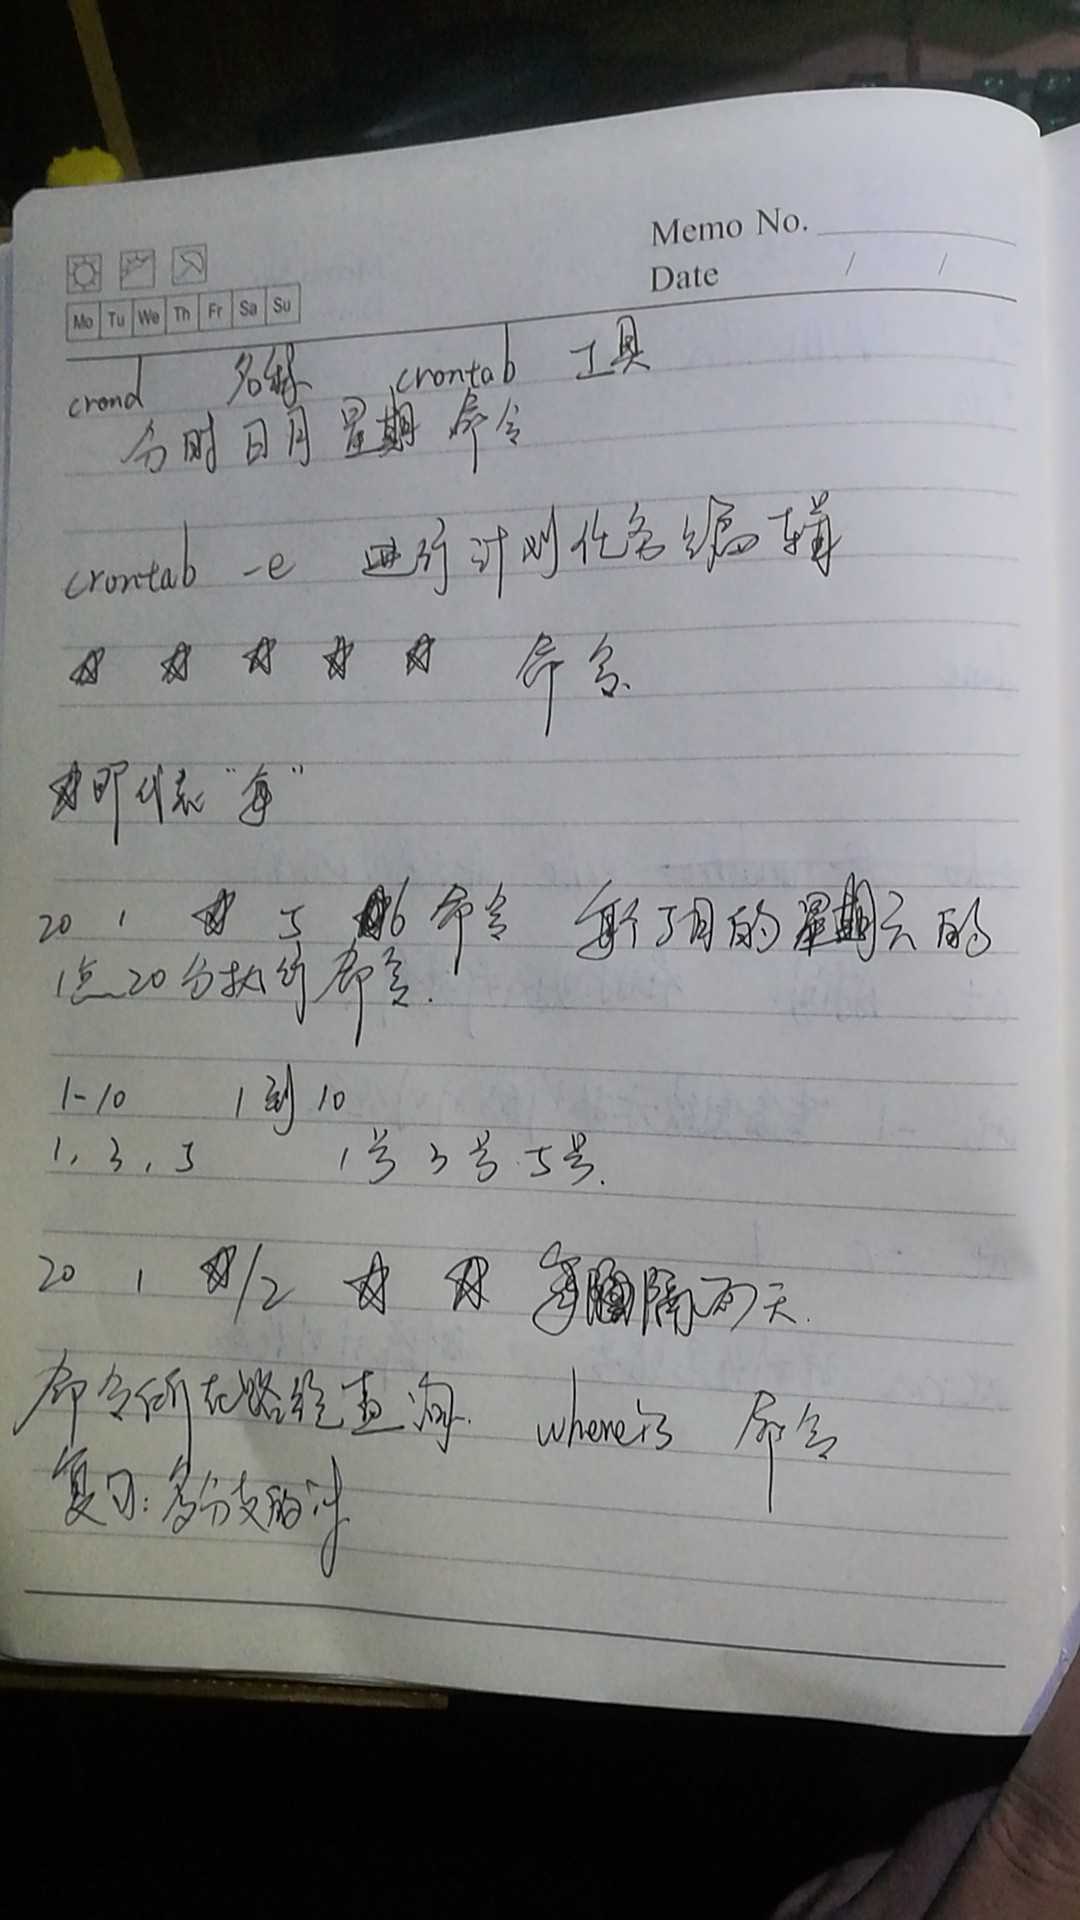 Memo No.
Date / /
Mo Tu We Th Fr Sa Su
crond 名称 crontab 工具
分时日月星期 命令
crontab -e 进行计划任务编辑
☆ ☆ ☆ ☆ ☆ 命令
☆即代表"每"
20 1 ☆ 5 6 命令 每个5月的星期六的
1点20分执行命令.
1-10 1到10
1,3,5 1号3号5号.
20 1 ☆/2 ☆ ☆ 每隔两天.
命令所在路径查询. whereis 命令
复习:多分支的